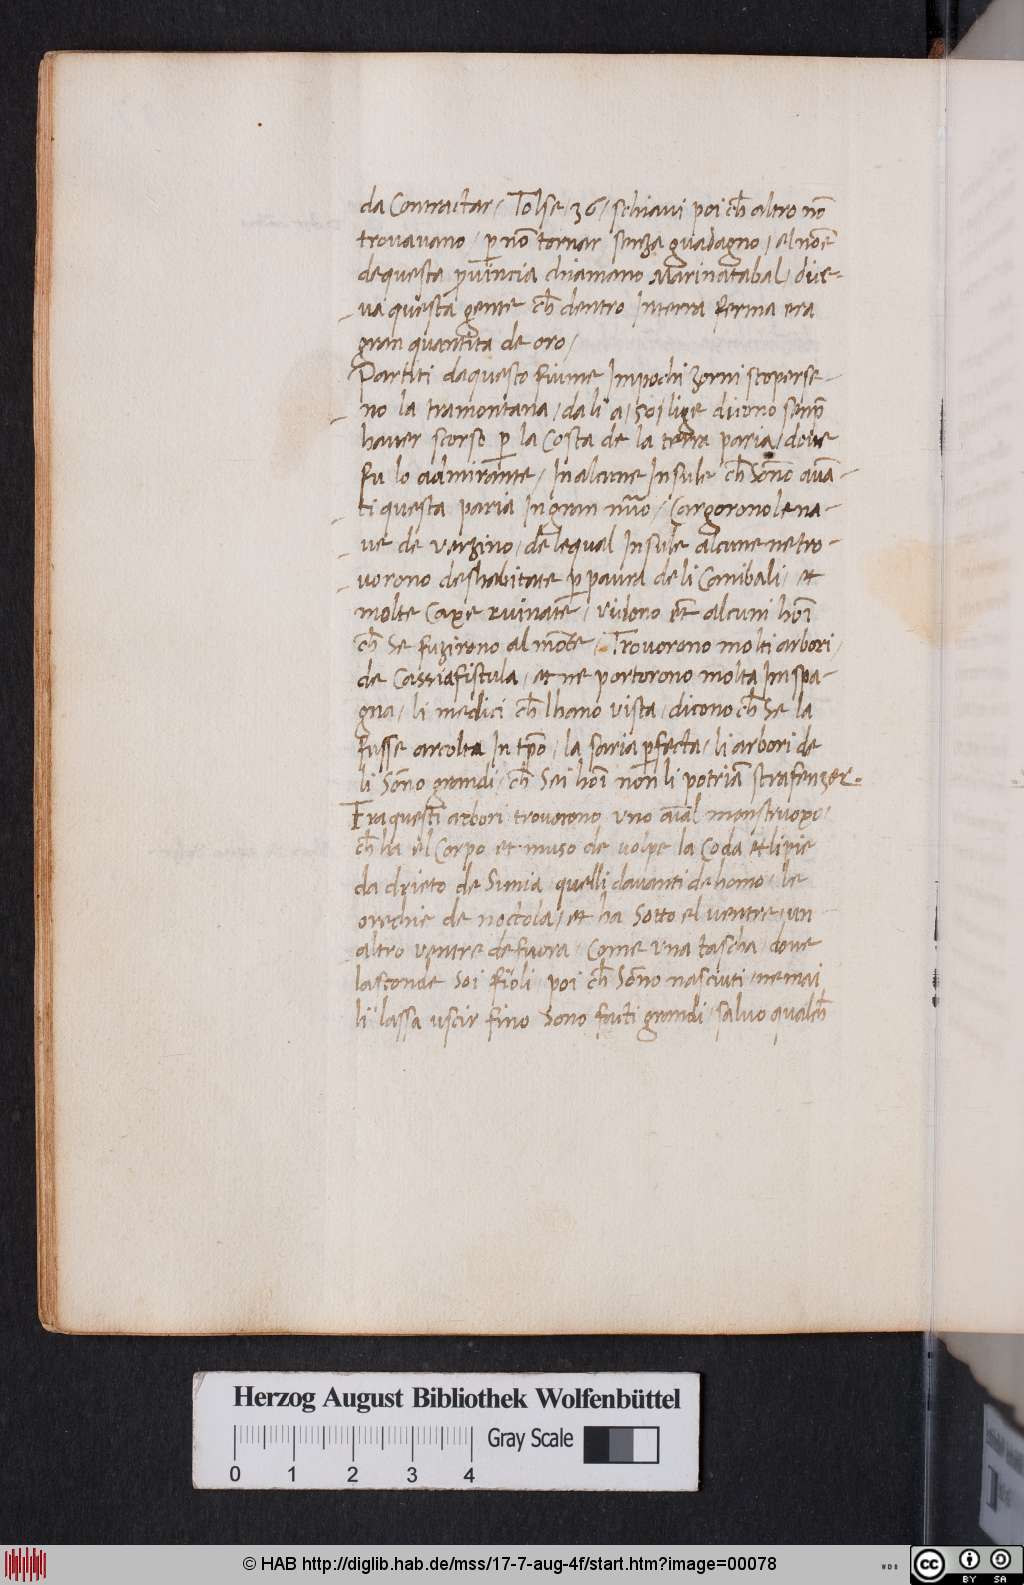 da Contractar / Tolse .36. schiaui poi ch̄ altro nō
trouauano / ꝑ nō tornar senza guadagno / el nōe
de questa ꝓuincia chiamano Marinatabal / dice-
ua questa gente ch̄ dentro In terra ferma era
gran quantita de oro /
Partiti da questo fiume In pochi zorni scoperse-
no la tramontana / da li a .50. lige dicono semp̄
hauer scorso ꝑ la Costa de la terra paria / doue
fu lo admirante / In alcune Insule ch̄ Sōno auā-
ti questa paria In gran nūo / Cargorono le na-
ue de verzino / de le qual Insule alcune ne tro-
uorono deshabitate ꝑ paura de li Canibali / et
molte Caxe ruinate / videno et̄ alcuni hoī
ch̄ Se fuzirono al mōte / Trouorono molti arbori /
de Cassia fistula / et ne portorono molta In spa-
gna / li medici ch̄ lhano vista / dicono ch̄ Se la
fusse arcolta In tp̄o / la saria ꝑfecta / li arbori de
li Sōno grandi / ch̄ Sei hoī non li potriā strafenzer.
Fra questi arbori trouorono vno aīal monstruoxo /
ch̄ ha el Corpo et muso de volpe la Coda et li pie
da drieto de Simia / quelli dauanti de homo / le
orechie de noctola / et ha Sotto el ventre / un
altro ventre de fuora / Come vna tascha / doue
lasconde Soi fioli / poi ch̄ Sōno nasciuti / ne mai
li lassa uscir fino Sono facti grandi / saluo qualch̄
Herzog August Bibliothek Wolfenbüttel
Gray Scale
0 1 2 3 4
© HAB http://diglib.hab.de/mss/17-7-aug-4f/start.htm?image=00078
WDB
cc BY SA